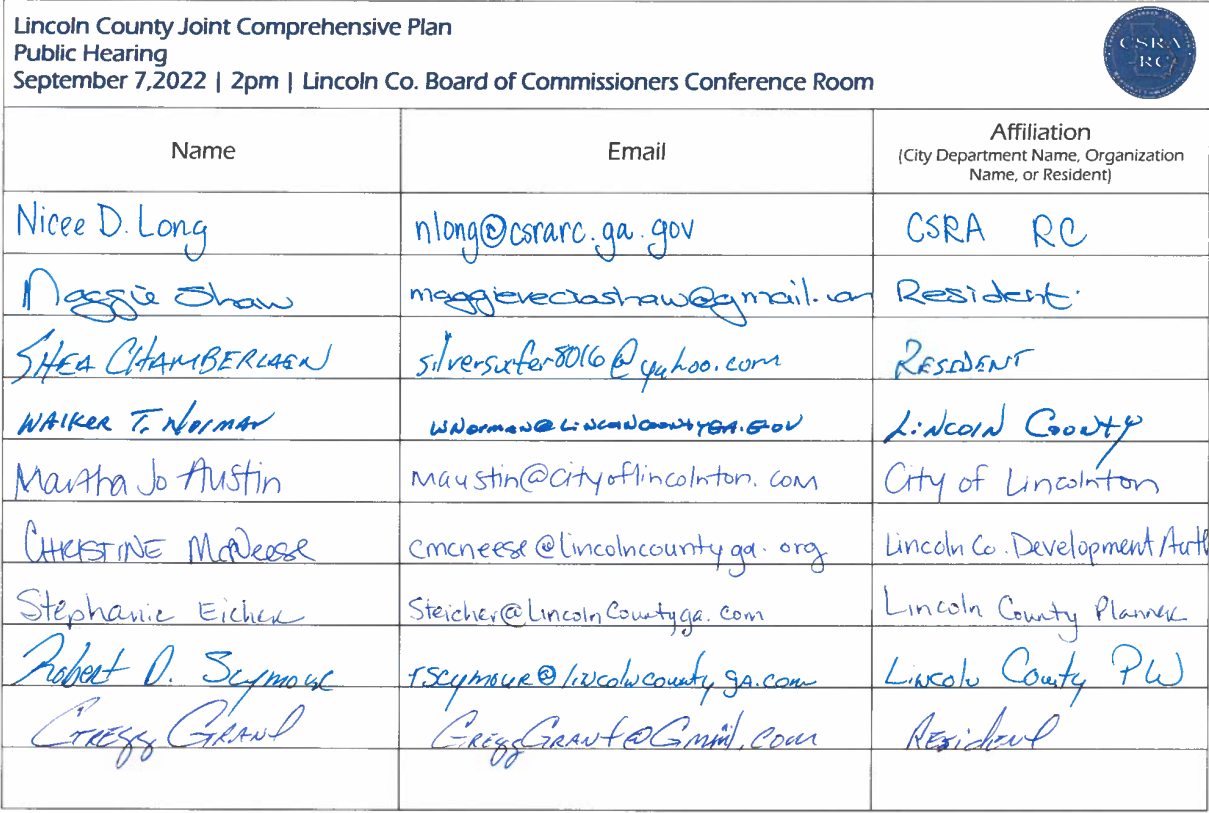 Lincoln County Joint Comprehensive Plan
Public Hearing
September 7,2022 | 2pm | Lincoln Co. Board of Commissioners Conference Room
CSRA
RC
Name Email Affiliation
(City Department Name, Organization
Name, or Resident)
Nicee D. Long nlong@csrarc.ga.gov CSRA RC
Maggie Shaw Resident
SHEA CHAMBERLAEN silversurfer8016@yahoo.com RESIDENT
WALKER T. NORMAN WNORMAN@LINCOLNCOUNTYGA.GOV LINCOLN COUNTY
Martha Jo Austin maustin@cityoflincolnton.com City of Lincolnton
CHRISTINE McNeese cmcneese@lincolncountyga.org Lincoln Co. Development Auth
Stephanie Eicher Steicher@LincolnCountyga.com Lincoln County Planner
Robert D. Seymour rseymour@lincolncountyga.com Lincoln County PW
GREGG GRANT GREGGGRANT@Gmail.com Resident